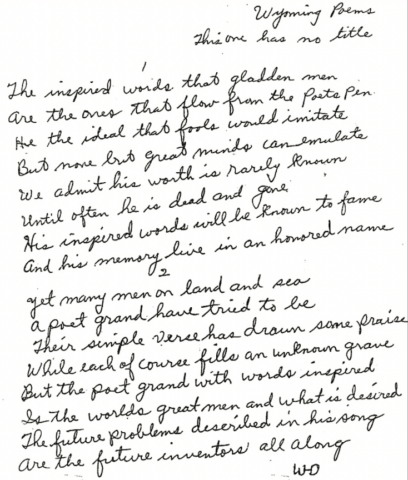 Wyoming Poems
This one has no title
1
The inspired words that gladden men
Are the ones that flow from the Poets Pen.
He the ideal that fools would imitate
But none but great minds can emulate
We admit his worth is rarely known
Until often he is dead and gone
His inspired words will be known to fame
And his memory live in an honored name
2
yet many men on land and sea
a poet grand have tried to be
Their simple verse has drawn some praise
While each of course fills an unknown grave
But the poet grand with words inspired
Is the worlds great men and what is desired
The future problems described in his song
Are the future inventors all along
WO